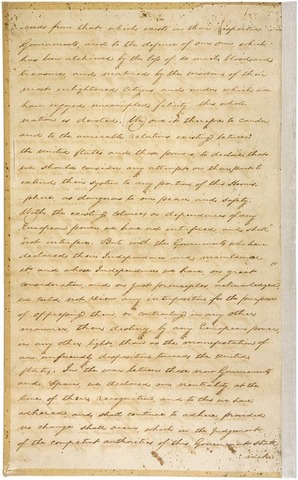 ceeds from that, which exists in their respective
Governments, and to the defence of our own, which
has been atchieved by the loss of so much blood and
treasure, and matured by the wisdom of their
most enlightened Citizens, and under which we
have enjoyed unexampled felicity, this whole
nation is devoted. We owe it therefore to candor,
and to the amicable relations existing between
the United States and those powers, to declare that
we should consider any attempt on their part to
extend their system to any portion of this Hemis
phere, as dangerous to our peace and safety.
With the existing Colonies or dependencies of any
European power, we have not interfered, and shall
not interfere. But with the Governments who have
declared their Independence, and maintained
it, and whose Independence we have, on great
consideration, and on just principles, acknowledged,
we could not view any interposition for the purpose
of oppressing them, or controuling in any other
manner, their destiny, by any European power,
in any other light, than as the manifestation of
an unfriendly disposition towards the United
States. In the war between those new Governments
and Spain, we declared our neutrality, at the
time of their recognition, and to this we have
adhered, and shall continue to adhere, provided
no change shall occur, which in the judgment
of the competent authorities of this Government, shall
make